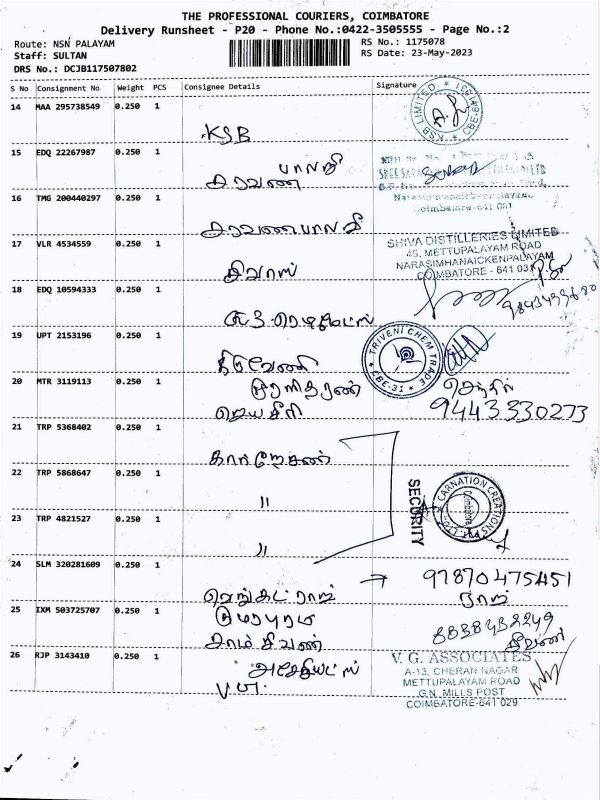 THE PROFESSIONAL COURIERS, COIMBATORE
Delivery Runsheet - P20 - Phone No.:0422-3505555 - Page No.:2
Route: NSN PALAYAM
Staff: SULTAN
DRS No.: DCJB117507802
RS No.: 1175078
RS Date: 23-May-2023
S No Consignment No Weight PCS Consignee Details Signature
14 MAA 295738549 0.250 1
KSB
KSB LIMITED
15 EDQ 22267987 0.250 1
பாலாஜி
சரவண
16 TMG 200440297 0.250 1
சரவணபாலாஜி
Coimbatore-641 031
17 VLR 4534559 0.250 1
சிவாஸ்
SHIVA DISTILLERIES LIMITED
45, METTUPALAYAM ROAD
NARASIMHANAICKENPALAYAM
COIMBATORE - 641 031
18 EDQ 10594333 0.250 1
19 UPT 2153196 0.250 1
திருவேணி
TRIVENI CHEM TRADE
CBE-31
20 MTR 3119113 0.250 1
முரளிதரன்
ஜெயஸ்ரீ
செந்தில்
9443330273
21 TRP 5368402 0.250 1
கார்னேசன்
22 TRP 5868647 0.250 1
"
SECURITY
CARNATION CREATIONS PVT. LTD.
Coimbatore
23 TRP 4821527 0.250 1
"
24 SLM 320281609 0.250 1
வெங்கட்ராஜ்
→ 97870475451
ராஜ்
25 IXM 503725707 0.250 1
குமரபுரம்
சாம் சிவன்
8838432249
26 RJP 3143410 0.250 1
அசோசியேட்ஸ்
V.G.
V. G. ASSOCIATES
A-13, CHERAN NAGAR
METTUPALAYAM ROAD
G.N. MILLS POST
COIMBATORE-641 029